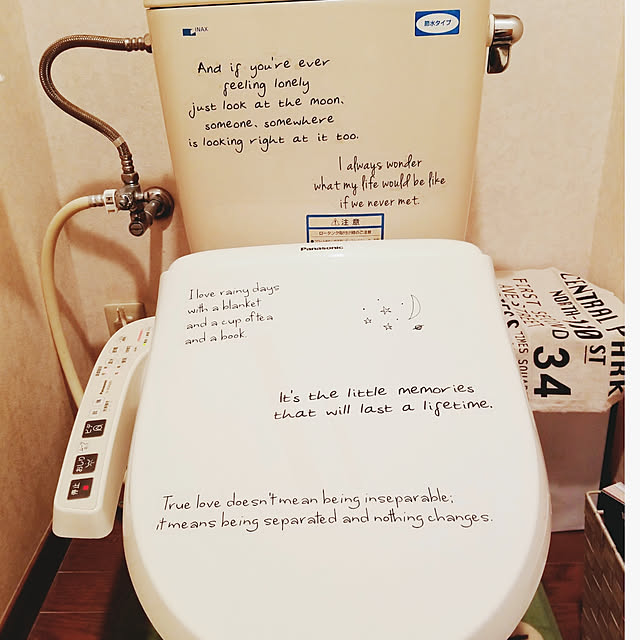 INAX
節水タイプ
And if you're ever
feeling lonely
just look at the moon.
someone, somewhere
is looking right at it too.
I always wonder
what my life would be like
if we never met.
⚠注意
Panasonic
I love rainy days
with a blanket
and a cup of tea
and a book.
It's the little memories
that will last a lifetime.
True love doesn't mean being inseparable;
it means being separated and nothing changes.
ビデ
おしり
停止
CENTRAL PARK
NORTH 110 ST
34
TIMES SQUARE